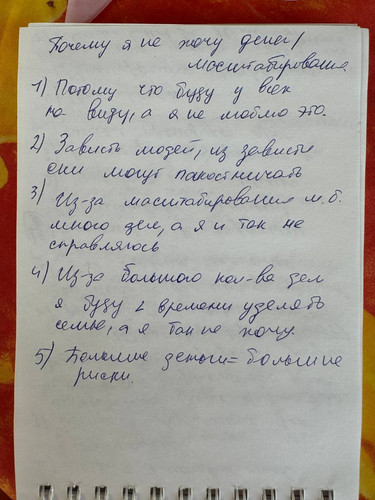 Почему я не хочу денег/
масштабирование.
1) Потому что буду у всех
на виду, а я не люблю это.
2) Зависть людей, из зависти
они могут пакостничать
3) Из-за масштабирования м.б.
много дел, а я и так не
справляюсь
4) Из-за большого кол-ва дел
я буду < времени уделять
семье, а я так не хочу.
5) Большие деньги = большие
риски.